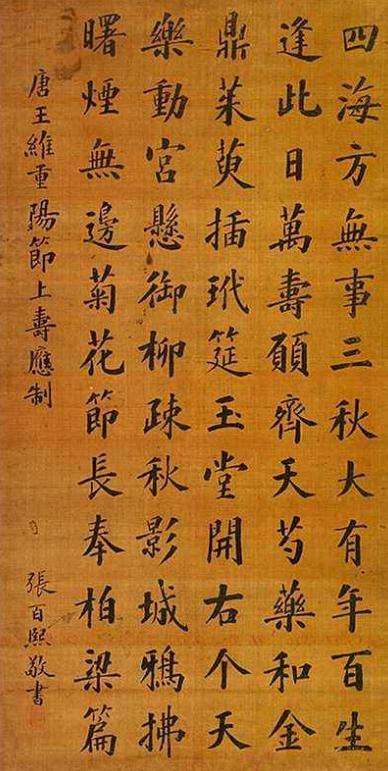 四海方無事三秋大有年百生
逢此日萬壽願齊天芍藥和金
鼎茱萸插玳筵玉堂開右个天
樂動宮懸御柳疎秋影城鴉拂
曙煙無邊菊花節長奉柏梁篇
唐王維重陽節上壽應制
張百熙敬書